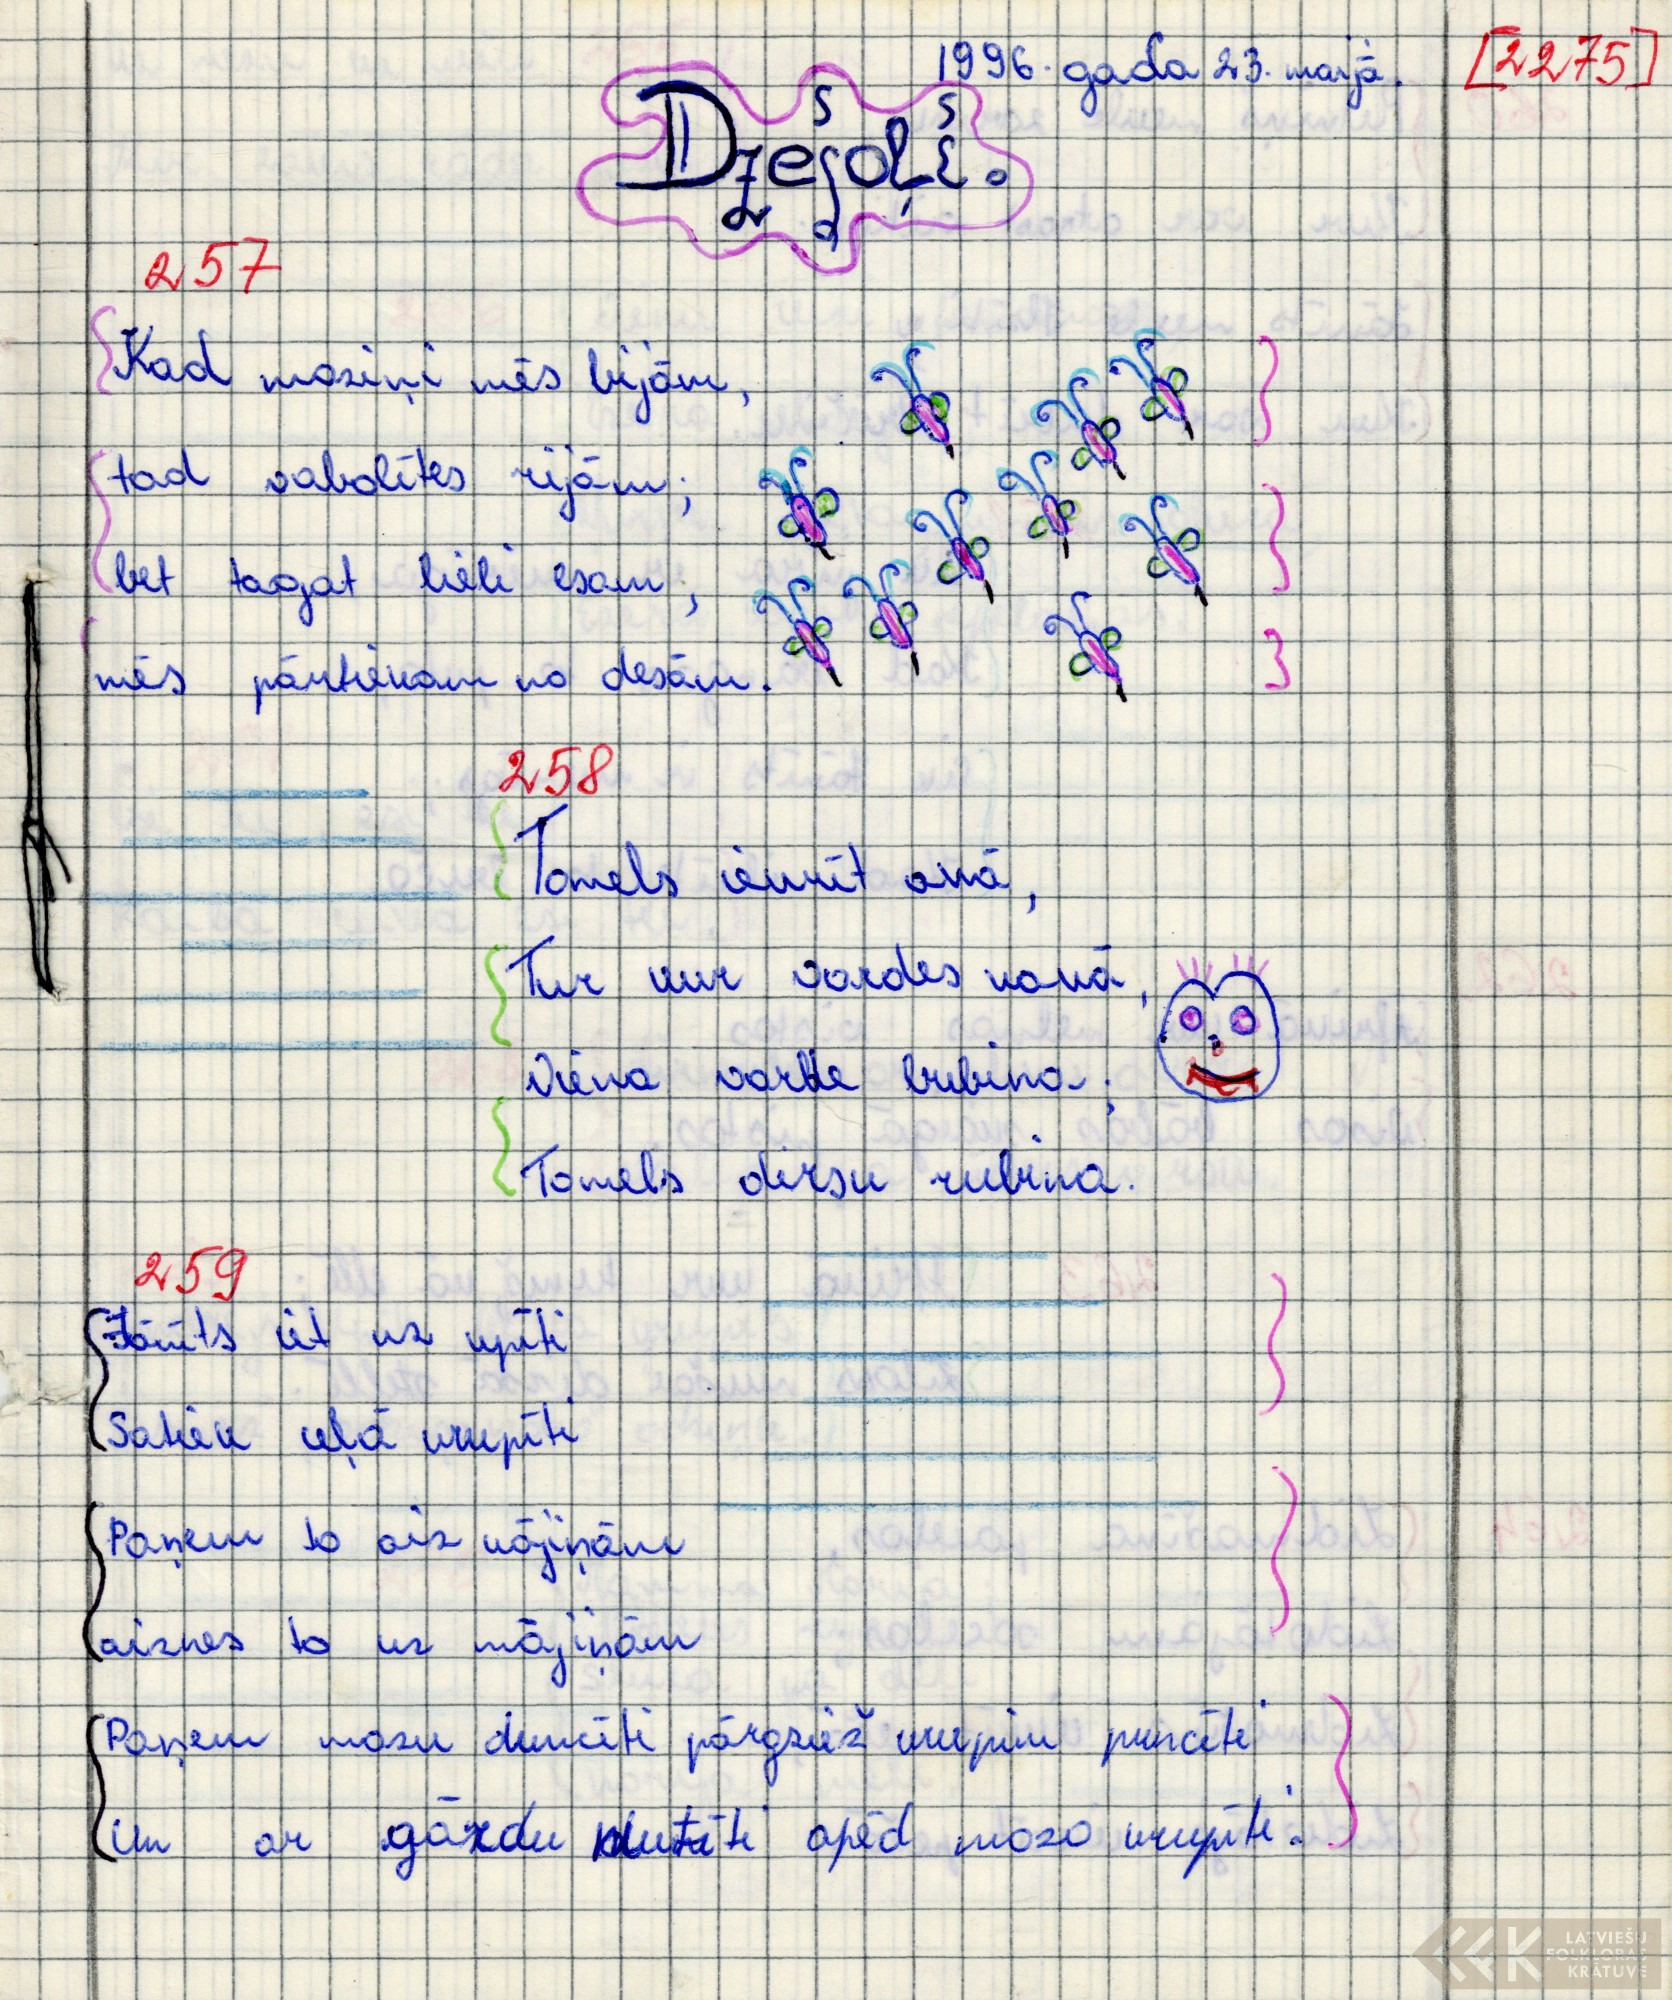 1996. gada 23. maijā.
[2275]
Dzejoļi.
257
Kad maziņi mēs bijām,
tad vabolītes rijām;
bet tagat lieli esam;
mēs pārtiekam no desām.
258
Tomels iekrīt akā,
Tur kur vardes kakā,
Viena varde bubina;
Tomels dirsu rubina.
259
Jānīts iet uz upīti
Satiek ceļā krupīti
Paņem to aiz kājiņām
aiznes to uz mājiņām
Paņem mazu duncīti pārgriež krupim puncīti
Un ar gāzdu mutīti apēd mazo krupīti.
LATVIEŠU
FOLKLORAS
KRĀTUVE